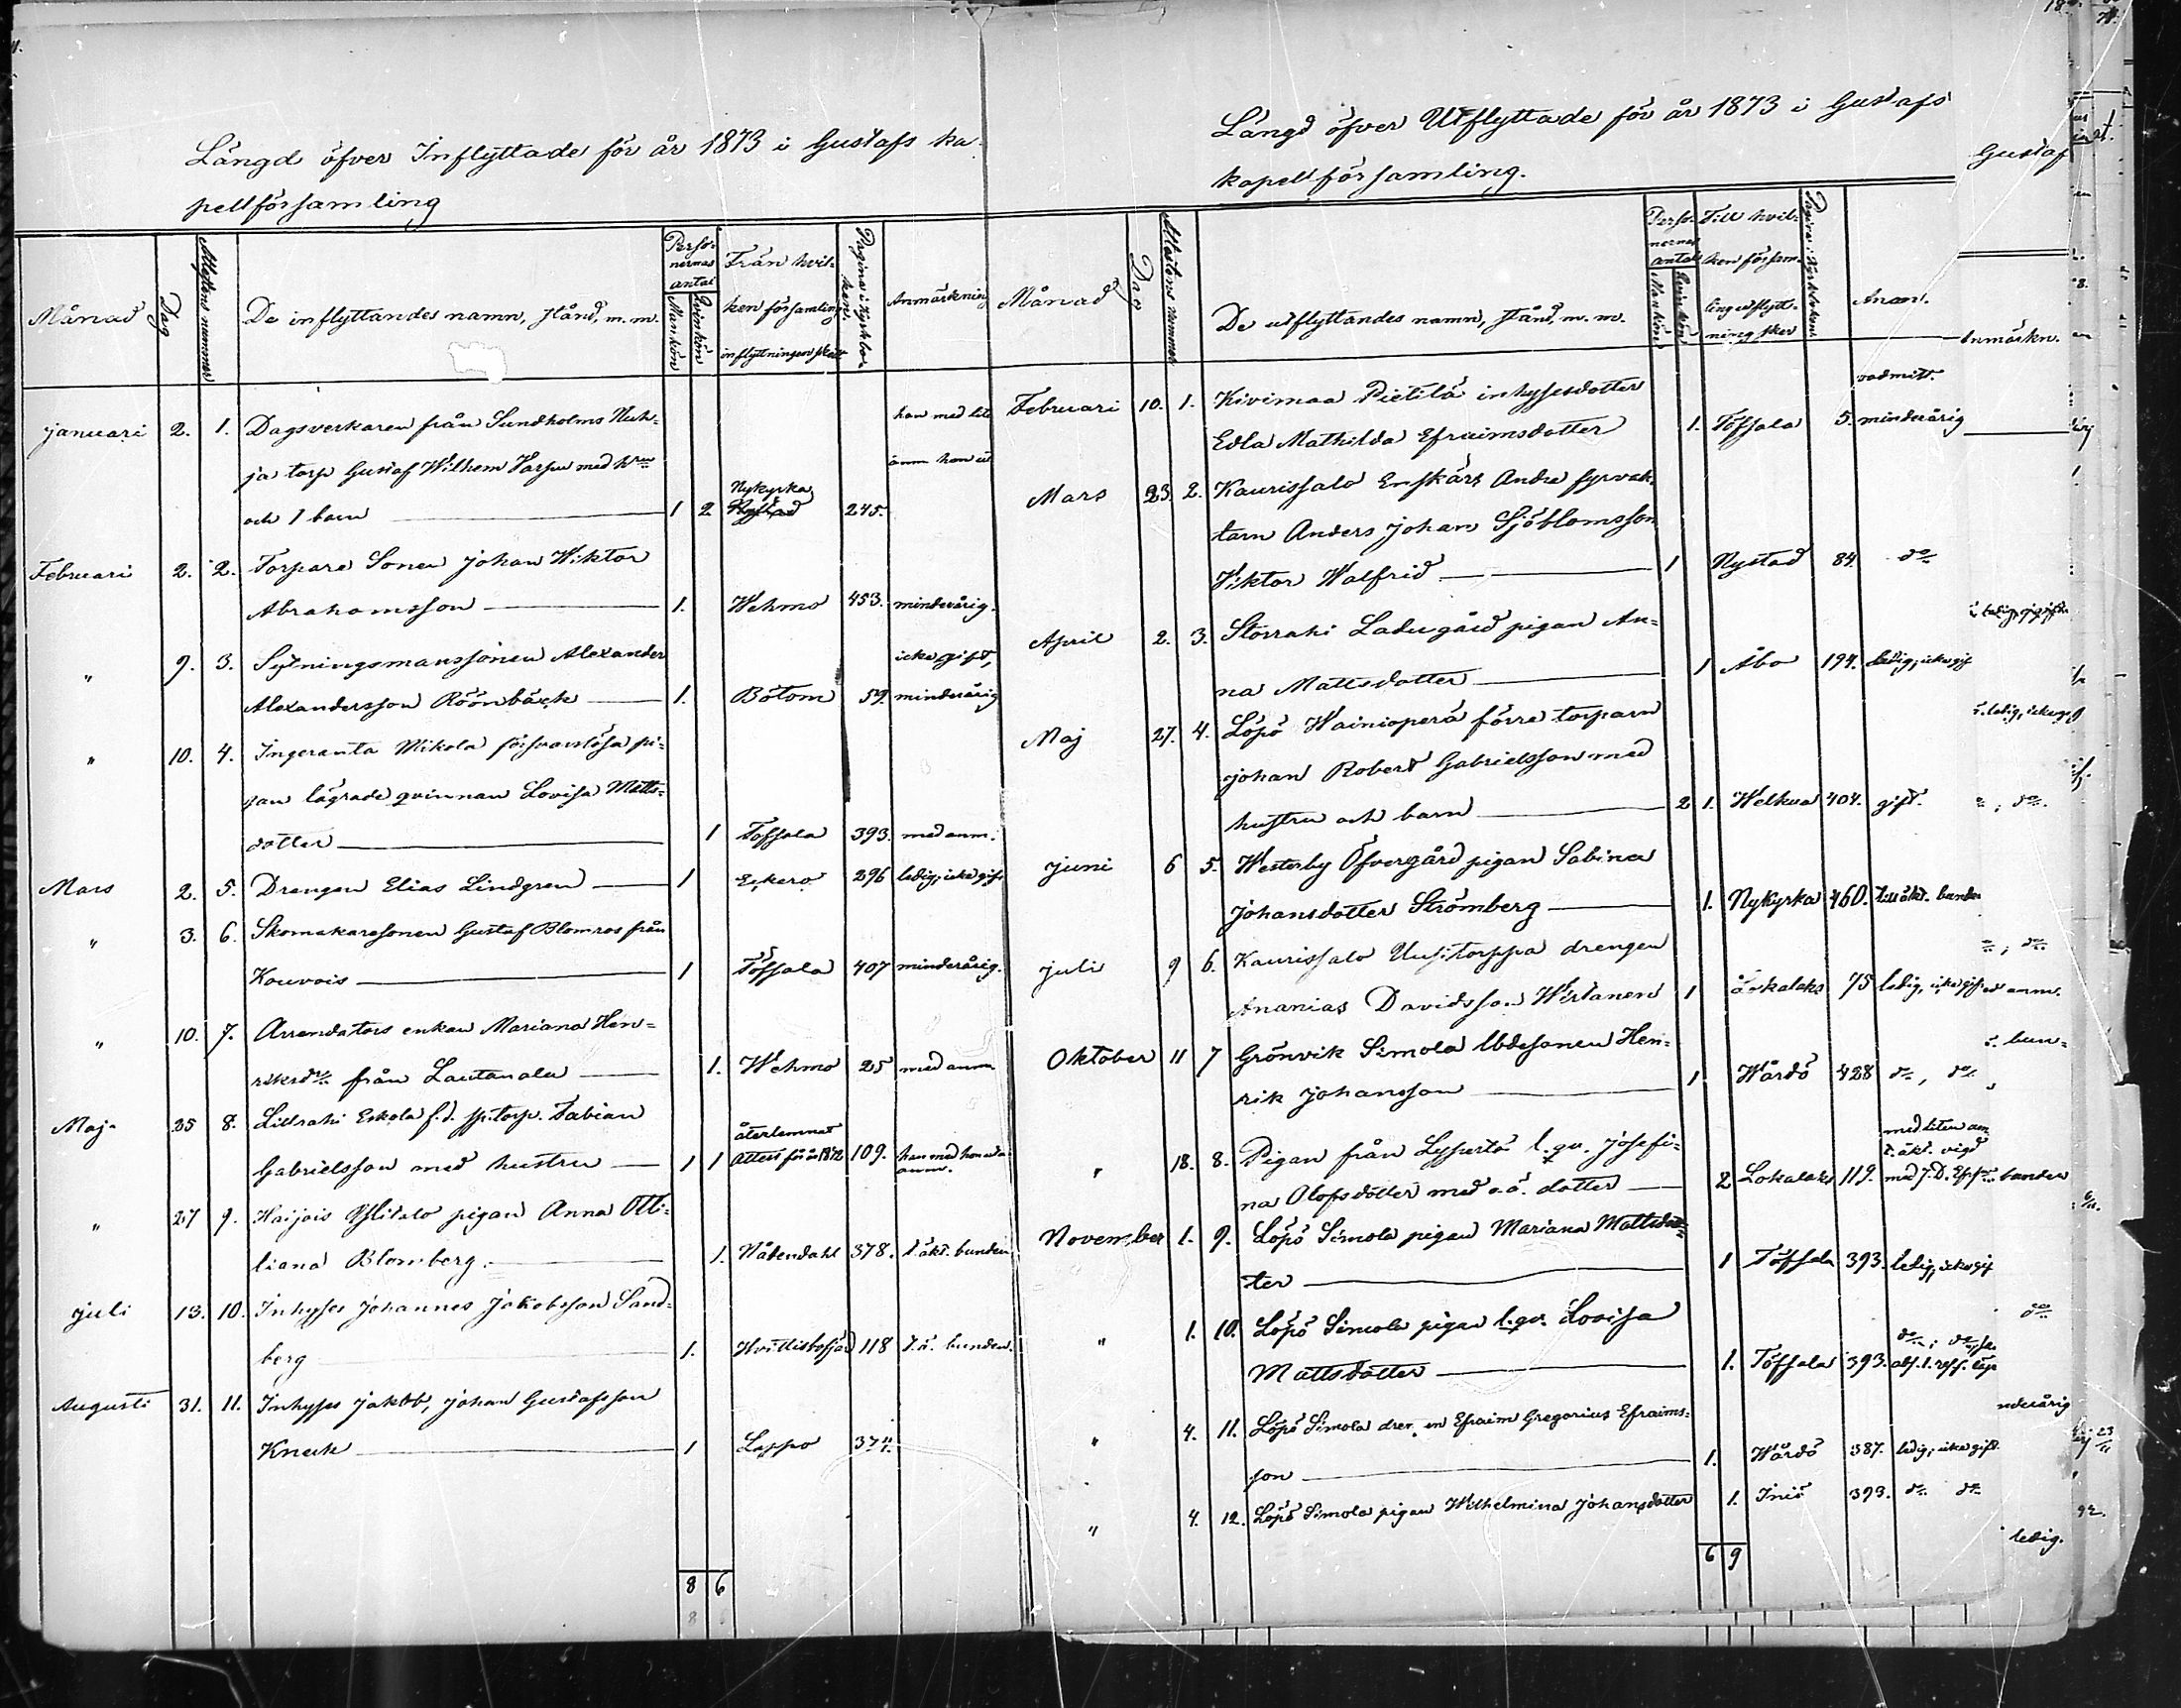 Längd öfver Inflyttade för år 1873 i Gustafs ka-
pellförsamling
Månad
Dag
Attestens nummer
De inflyttandes namn, stånd, m. m.
Perso-
nernas
antal
Mankön
Qvinkön
Från hvil-
ken församling
inflyttningen skett
Pagina i kyrkbo-
ken.
Anmärkning
januari 2. 1. Dagsverkaren från Sundholms
ja torp Gustaf Wilhem med hru
och 1 barn 1 2 Nykyrka 245.
Februari 2. 2. Torpare Sonen Johan Wiktor
Abrahamsson 1. Wehmo 453. minderårig.
" 9. 3. Sytningsmanssonen Alexander icke gift,
Alexandersson Röönbäck 1. Bötom 59. minderårig
" 10. 4. Ingeranta Mikola försvarslösa pi-
gan lägrade qvinnan Lovisa Matts-
dotter 1 Töfsala 393. med anm.
Mars 2. 5. Drengen Elias Lindgren 1 Eckerö 296 ledig, icke gift
" 3. 6. Skomakaresonen Gustaf Blomros från
Kouvois 1 Töfsala 407 minderårig.
" 10. 7. Arrendators enkan Mariana Hen-
riksdr från Lautanala 1. Wehmo 25 med anm.
Maj 25 8. Eskola f.d. torp. Fabian återlemnat
Gabrielsson med hustru 1 1 attest för år 1872 109. han med hon utan
anm.
" 27 9. Haijais Ylitalo pigan Anna Otti-
liana Blomberg. 1. Nådendahl 378. t. äkt. bunden
juli 13. 10. Inhyses Johannes Jakobsson Sand-
berg 1. Hvittisbofjärd 118 t. ä. bunden.
Augusti 31. 11. Inhyses Jakob, Johan Gustafsson
Knech 1 Lappo 374.
8 6
Längd öfver Utflyttade för år 1873 i Gustafs
kapellförsamling.
Månad
Dag
Attestens nummer
De utflyttandes namn, stånd, m. m.
Perso-
nernas
antal
Mankön
Qvinkön
Till hvil-
ken försam-
ling utflytt-
ning sker
Pagina i kyrkboken
Anm.
Februari 10. 1. Kivimaa Pietilä inhysesdotter
Edla Mathilda Efraimsdotter 1. Töfsala 5. minderårig
Mars 23. 2. Kaurissalo Enskärs Andre fyrvak-
tarn Anders Johan Sjöblomsson
Viktor Walfrid 1 Nystad 84. do
April 2. 3. Storrahi Ladugård pigan An-
na Mattsdotter 1 Åbo 194. ledig, icke gif
Maj 27. 4. Löpö Wainionperä förre torparn
Johan Robert Gabrielsson med
hustru och barn 2 1. Welkua 404. gift.
juni 6 5. Westerby Öfvergård pigan Sabina
Johansdotter Strömberg 1. Nykyrka 460. till äkt. bunden
juli 9 6. Kaurissalo Uusitorppa drengen
Ananias Davidsson Wirtanen 1 Lokalaks 75 ledig, icke gift
Oktober 11 7 Grönvik Simola Ibdesonen Hen-
rik Johansson 1 Wårdö 428 do, do
" 18. 8. Pigan från Lypertö l. qv. Josefi-
na Olofsdotter med o.ä. dotter 2 Lokalaks 119. med liten an
t. äkt. vigd
November 1. 9. Löpö Simola pigan Mariana Mattsdot-
ter 1 Töfsala 393. ledig, icke gif
" 1. 10. Löpö Simola pigan l. qv. Lovisa
Mattsdotter 1. Töfsala 393.
" 4. 11. Löpö Simola drengen Efraim Gregorius Efraims-
son 1. Wårdö 387. ledig, icke gift.
" 4. 12. Löpö Simola pigan Wilhelmina Johansdotter 1. Iniö 393. do do
6 9
Gustaf
Anmärkn.
ledig.